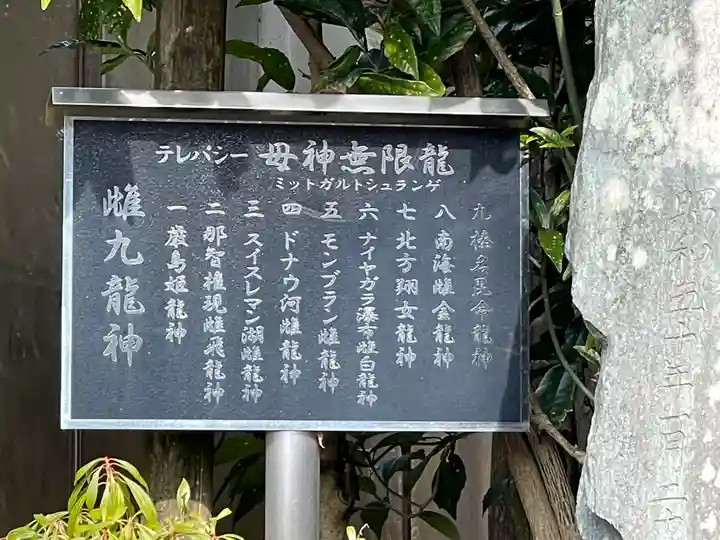 テレパシー 母神無限龍
ミットガルトシュランゲ
雌九龍神
一 厳島姫龍神
二 那智権現雌飛龍神
三 スイスレマン湖雌龍神
四 ドナウ河雌龍神
五 モンブラン雌龍神
六 ナイヤガラ瀑布雌白龍神
七 北方翔女龍神
八 南海雌金龍神
九 榛名毘命龍神
昭和五十年一月二十